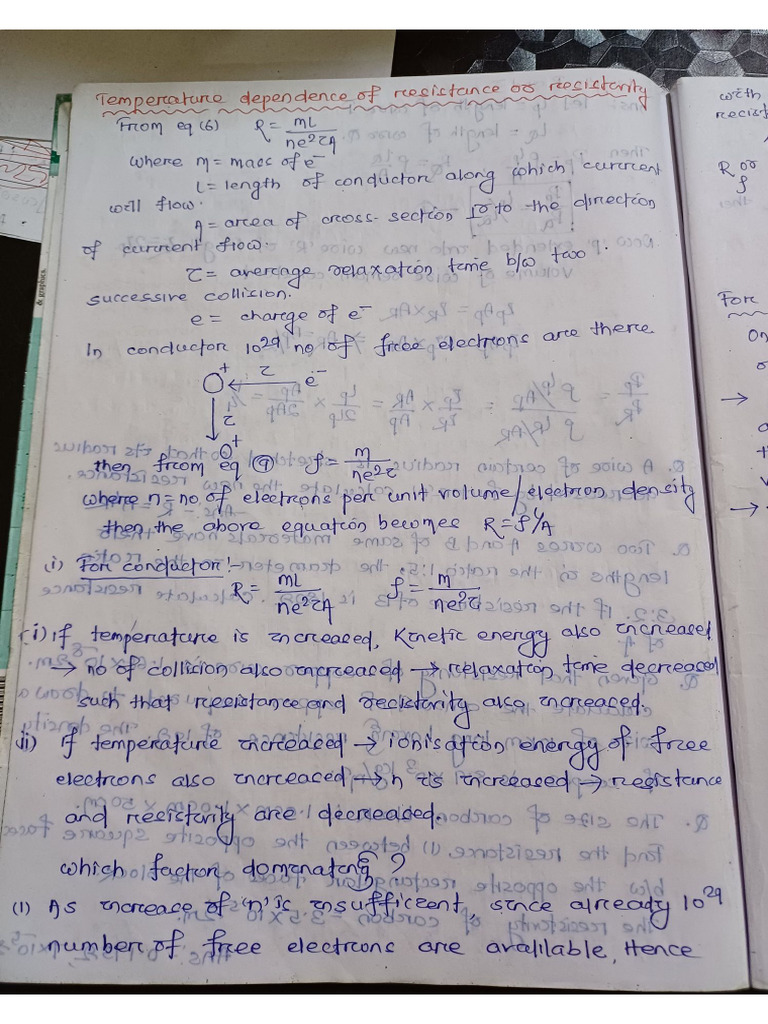 Temperature dependence of resistance or resistivity
From eq (6) R = ml/ne²τA
where m = mass of e⁻
l = length of conductor along which current
will flow.
A = area of cross-section ⊥r to the direction
of current flow.
τ = average relaxation time b/w two
successive collision.
e = charge of e⁻
In conductor 10²⁹ no of free electrons are there.
+ τ e⁻
τ
+
then from eq (9) ρ = m/ne²τ
where n = no of electrons per unit volume / electron density
then the above equation becomes R = ρ l/A
i) For conductor :-
R = ml/ne²τA ρ = m/ne²τ
(i) If temperature is increased, Kinetic energy also increased
→ no of collision also increased → relaxation time decreased
such that resistance and resistivity also increased.
ii) If temperature increased → ionisation energy of free
electrons also increased → n is increased → resistance
and resistivity are decreased.
which factor dominating?
(1) As increase of 'n' is insufficient, since already 10²⁹
number of free electrons are available, Hence
with
resist
R or
ρ
For
On
→
→